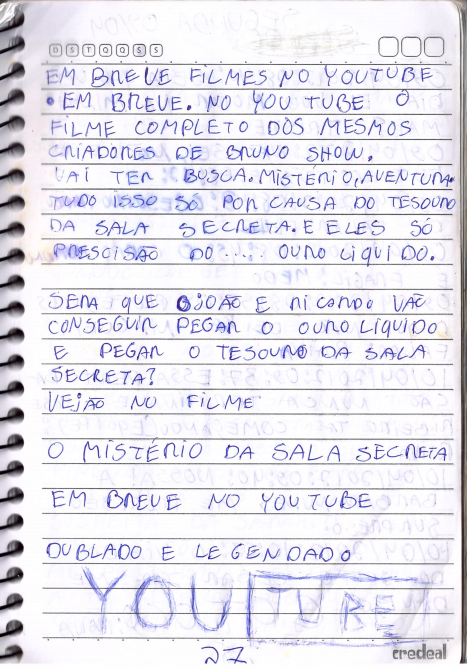 D S T Q Q S S
EM BREVE FILMES NO YOUTUBE
• EM BREVE. NO YOU TUBE O
FILME COMPLETO DOS MESMOS
CRIADORES DE BRUNO SHOW.
VAI TER BUSCA. MISTÉRIO, AVENTURA.
TUDO ISSO SÓ POR CAUSA DO TESOURO
DA SALA SECRETA. E ELES SÓ
PRESCISÃO DO.... OURO LIQUIDO.
SERA QUE OJOÃO E RICARDO VÃO
CONSEGUIR PEGAR O OURO LÍQUIDO
E PEGAR O TESOURO DA SALA
SECRETA?
VEJÃO NO FILME
O MISTÉRIO DA SALA SECRETA
EM BREVE NO YOUTUBE
DUBLADO E LEGENDADO
YOUTUBE
27
credeal